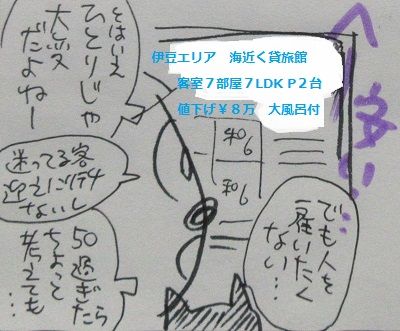 へー安い…
伊豆エリア　海近く貸旅館
客室７部屋７LDK P２台
値下げ￥８万　大風呂付
和6
和6
でも…人を
雇いたく
ない…
とはいえ
ひとりじゃ
大変
だよねー
迷ってる客
迎えに行け
ないし
50過ぎたら
ちょっと
考えても…